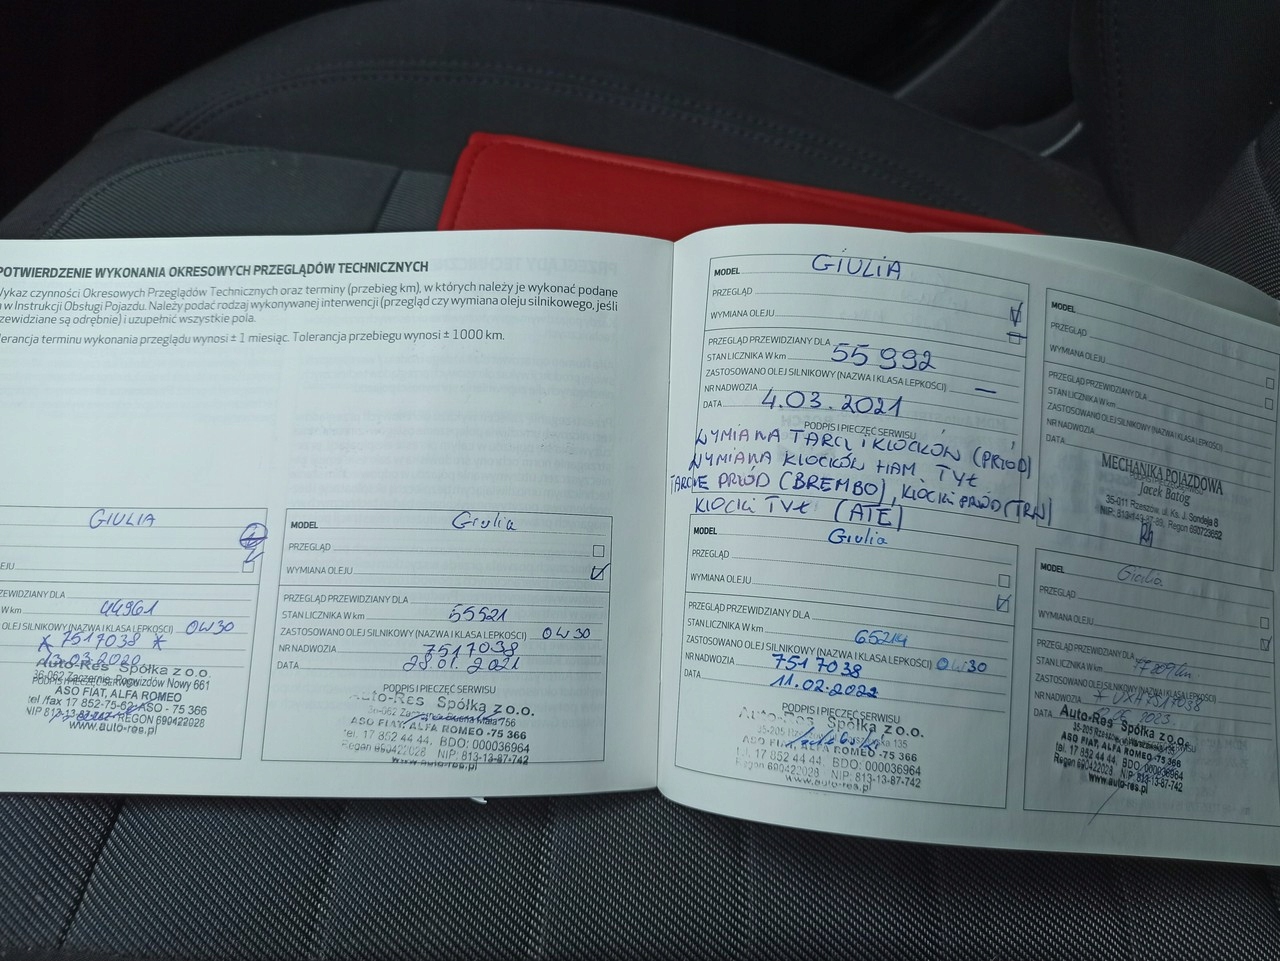 POTWIERDZENIE WYKONANIA OKRESOWYCH PRZEGLĄDÓW TECHNICZNYCH
Wykaz czynności Okresowych Przeglądów Technicznych oraz terminy (przebieg km), w których należy je wykonać podane
w Instrukcji Obsługi Pojazdu. Należy podać rodzaj wykonywanej interwencji (przegląd czy wymiana oleju silnikowego, jeśli
zewidziane są odrębnie) i uzupełnić wszystkie pola.
erancja terminu wykonania przeglądu wynosi ± 1 miesiąc. Tolerancja przebiegu wynosi ± 1000 km.
GIULIA
EJU
ZEWIDZIANY DLA
W km 44961
OLEJ SILNIKOWY (NAZWA I KLASA LEPKOŚCI) 0W30
* 7517038 *
03.2020
Auto-Res Spółka z o.o.
36-062 Zaczernie, Pogwizdów Nowy 661
ASO FIAT, ALFA ROMEO
tel /fax 17 852-75-62 ASO - 75 366
NIP 813-13-87-742 REGON 690422028
www.auto-res.pl
MODEL Giulia
PRZEGLĄD
WYMIANA OLEJU
PRZEGLĄD PRZEWIDZIANY DLA
STAN LICZNIKA W km 55521
ZASTOSOWANO OLEJ SILNIKOWY (NAZWA I KLASA LEPKOŚCI) 0W30
NR NADWOZIA 7517038
DATA 28.01.2021
PODPIS I PIECZĘĆ SERWISU
Auto-Res Spółka z o.o.
36-062 756
ASO FIAT, ALFA ROMEO -75 366
tel. 17 852 44 44, BDO: 000036964
Regon 690422028 NIP: 813-13-87-742
www.auto-res.pl
MODEL GIULIA
PRZEGLĄD
WYMIANA OLEJU
PRZEGLĄD PRZEWIDZIANY DLA
STAN LICZNIKA W km 55992
ZASTOSOWANO OLEJ SILNIKOWY (NAZWA I KLASA LEPKOŚCI) —
NR NADWOZIA
DATA 4.03.2021
PODPIS I PIECZĘĆ SERWISU
WYMIANA TARCZ I KLOCKÓW (PRZÓD)
WYMIANA KLOCKÓW HAM. TYŁ
TARCZE PRZÓD (BREMBO), KLOCKI PRZÓD (TRW)
KLOCKI TYŁ (ATE)
MODEL Giulia
PRZEGLĄD
WYMIANA OLEJU
PRZEGLĄD PRZEWIDZIANY DLA
STAN LICZNIKA W km 65214
ZASTOSOWANO OLEJ SILNIKOWY (NAZWA I KLASA LEPKOŚCI) 0W30
NR NADWOZIA 7517038
DATA 11.02.2022
PODPIS I PIECZĘĆ SERWISU
Auto-Res Spółka z o.o.
35-205 135
ASO FIAT, ALFA ROMEO -75 366
tel. 17 852 44 44, BDO: 000036964
Regon 690422028 NIP: 813-13-87-742
www.auto-res.pl
MODEL
PRZEGLĄD
WYMIANA OLEJU
PRZEGLĄD PRZEWIDZIANY DLA
STAN LICZNIKA W km
ZASTOSOWANO OLEJ SILNIKOWY (NAZWA I KLASA LEPKOŚCI)
NR NADWOZIA
DATA
MECHANIKA POJAZDOWA
Jacek Batóg
35-011 Rzeszów, ul. Ks. J. Sondeja 8
Regon 690723692
MODEL Giulia
PRZEGLĄD
WYMIANA OLEJU
PRZEGLĄD PRZEWIDZIANY DLA
STAN LICZNIKA W km
ZASTOSOWANO OLEJ SILNIKOWY (NAZWA I KLASA LEPKOŚCI)
NR NADWOZIA
DATA 2023
Auto-Res Spółka z o.o.
35-205 Rzeszów
ASO FIAT, ALFA ROMEO -75 366
tel. 17 852 44 44, BDO:000036964
Regon 690422028 NIP: 813-13-87-742
www.auto-res.pl